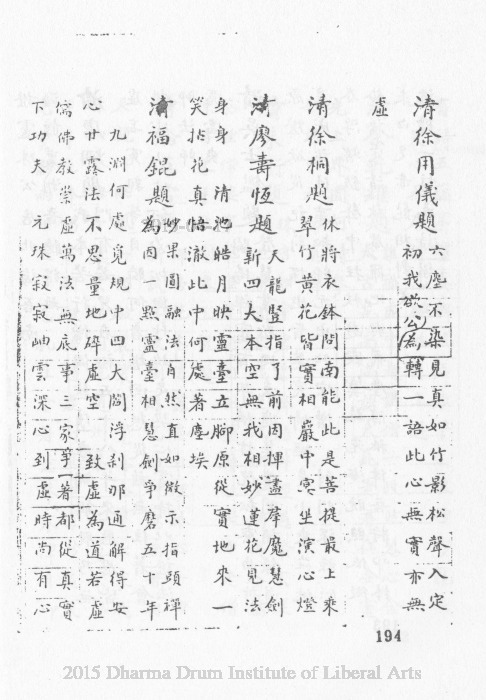 清徐用儀題 六塵不染見真如竹影松聲入定
初我欲公為轉一語此心無實亦無
虛
清徐桐題 休將衣鉢問南能此是菩提最上乘
翠竹黃花皆實相巖中冥坐演心燈
清廖壽恆題 天龍豎指了前因揮盡群魔慧劍
新四大本空無我相妙蓮花見法
身 清池皓月映靈臺立腳原從實地來一
笑拈花真悟澈此中何處著塵埃
清福錕題 妙果圓融法自然直如微示指頭禪
為因一點靈臺相慧劍爭磨五十年
九淵何處覓規中四大閻浮剎那通解得安
心廿露法不思量地碎虛空 致虛為道若虛
儒佛教崇虛萬法無底事三家爭著都從真實
下功夫 元珠寂寂岫雲深心到虛時尚有心
194
2015 Dharma Drum Institute of Liberal Arts